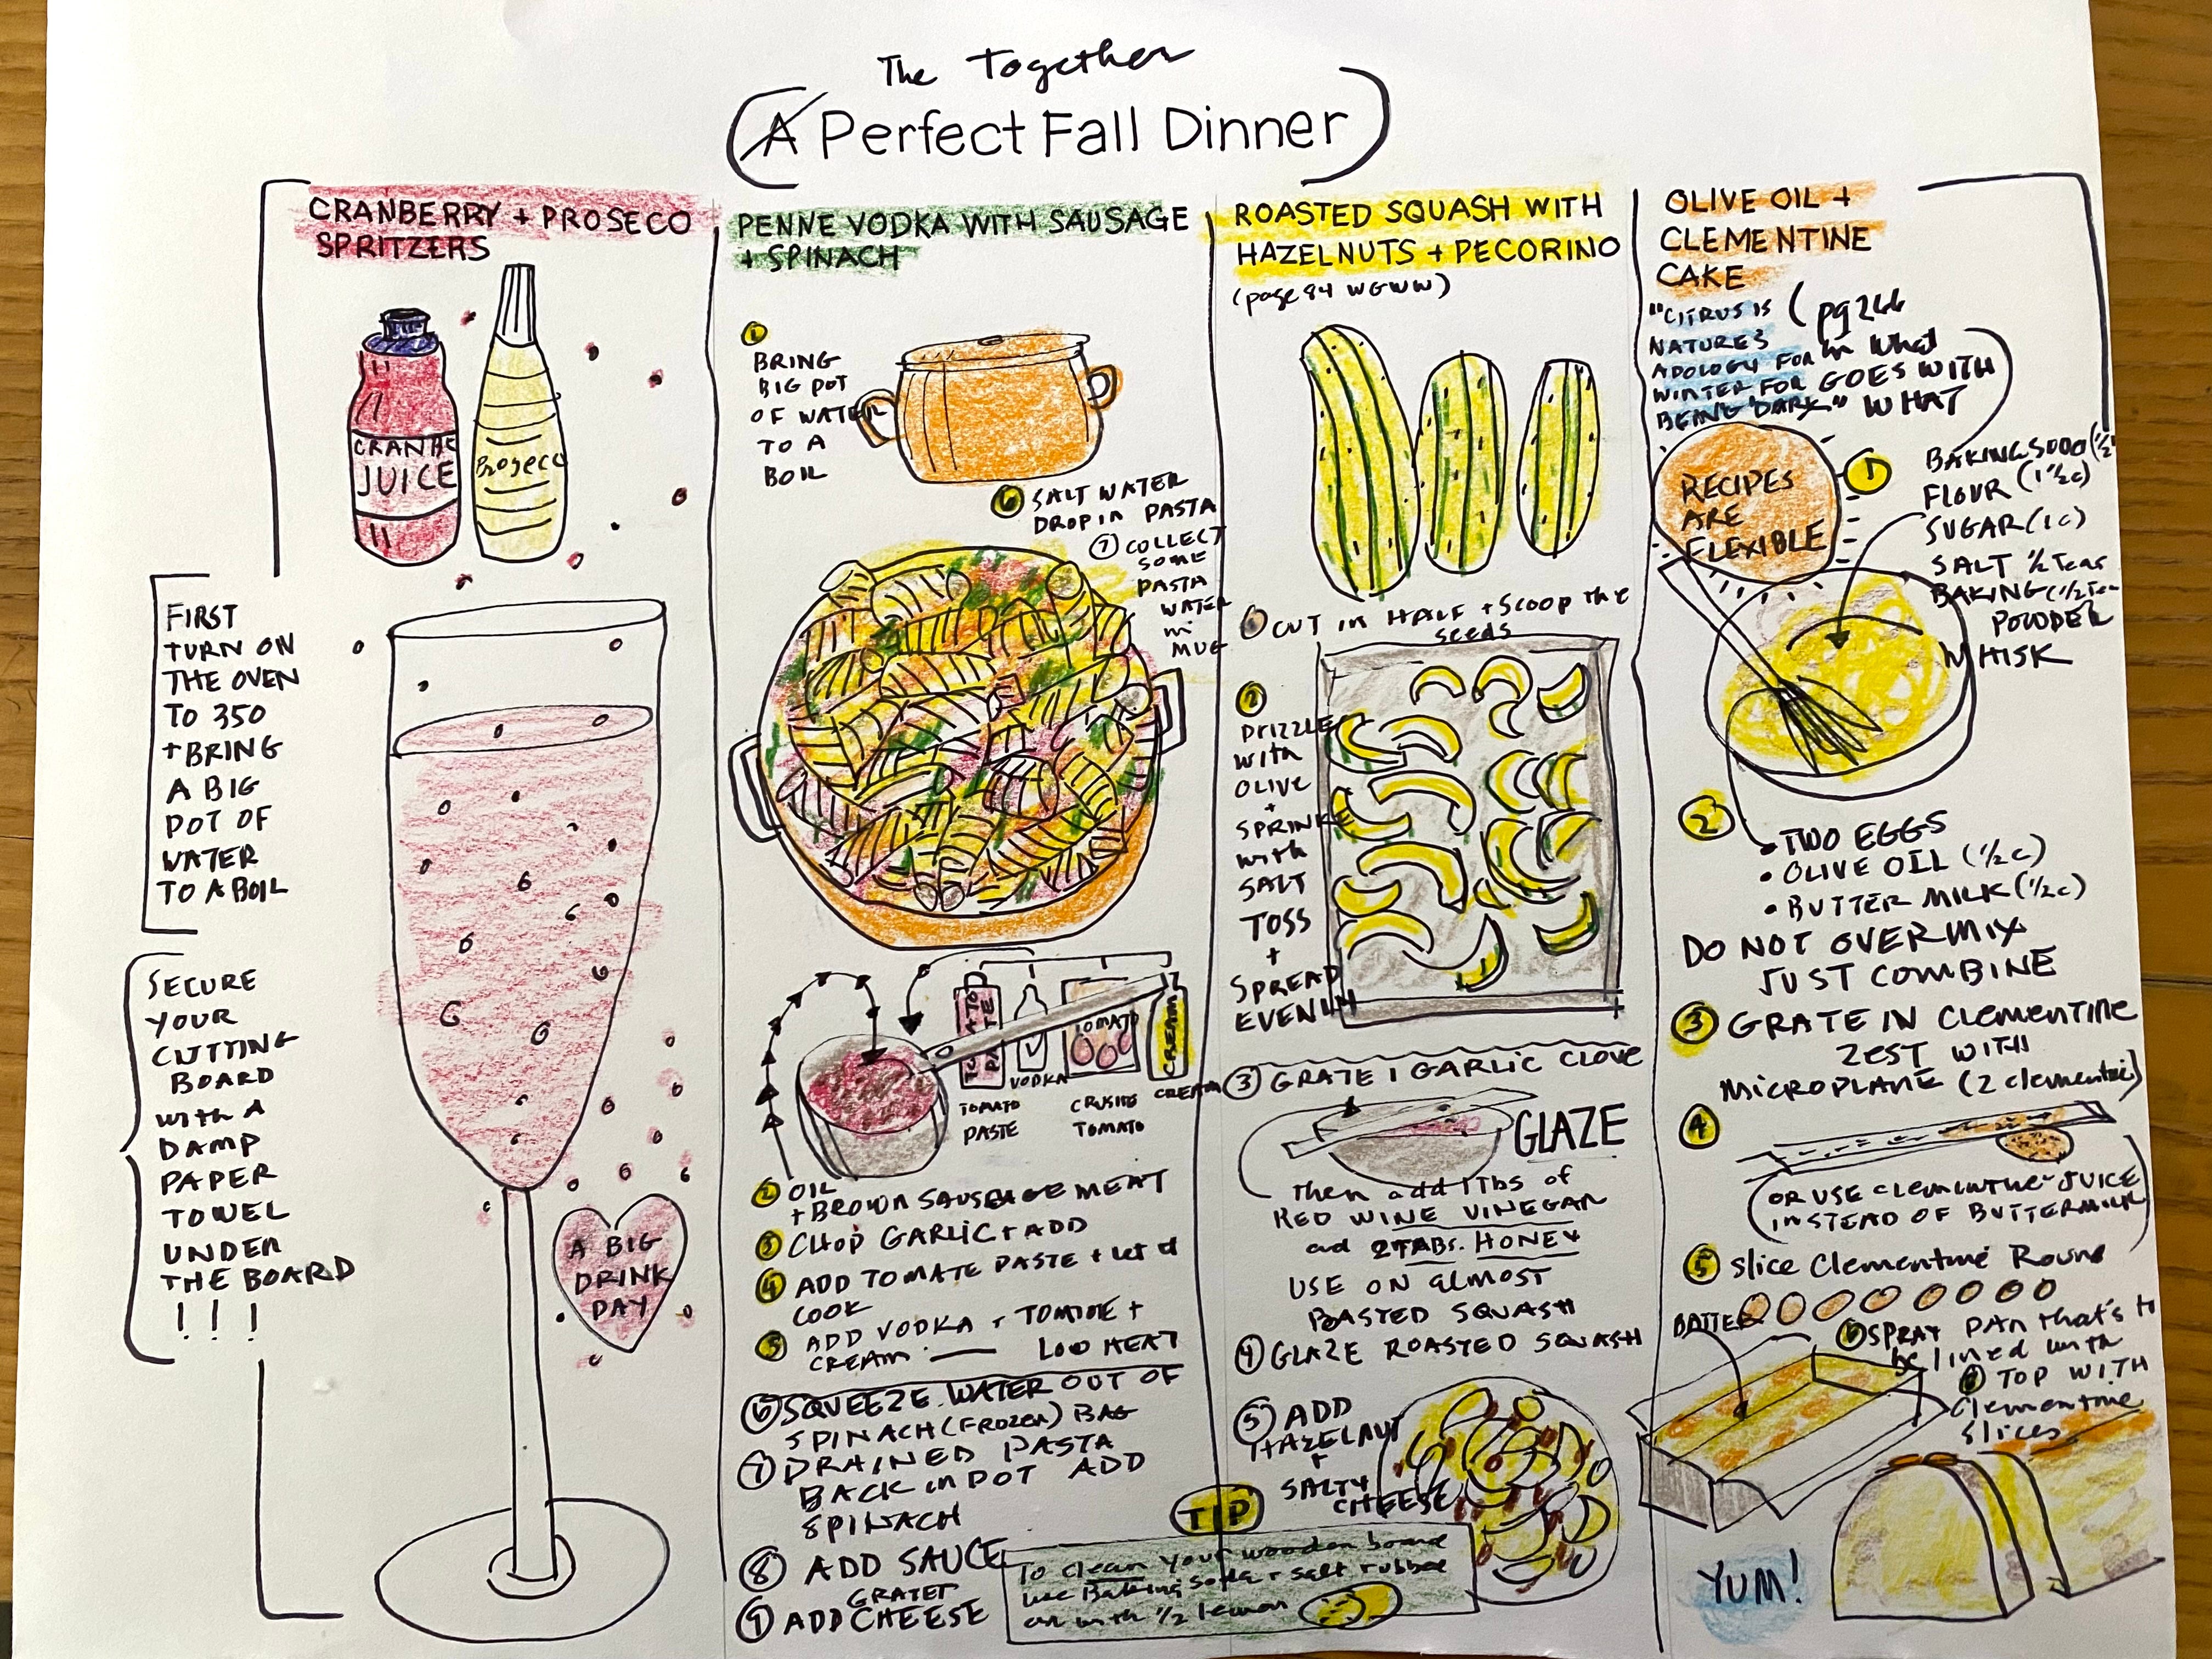 The Together
(A Perfect Fall Dinner)
CRANBERRY + PROSECO
SPRITZERS
CRANBE
JUICE
Proseco
FIRST
TURN ON
THE OVEN
TO 350
+ BRING
A BIG
POT OF
WATER
TO A BOIL
SECURE
YOUR
CUTTING
BOARD
with A
DAMP
PAPER
TOWEL
UNDER
THE BOARD
! ! !
A BIG
DRINK
DAY
PENNE VODKA WITH SAUSAGE
+ SPINACH
① BRING
BIG POT
OF WATER
TO A
BOIL
⑥ SALT WATER
DROP IN PASTA
⑦ COLLECT
SOME
PASTA
WATER
in
MUG
TOMATO
PASTE
TOMATO
CREAM
VODKA
TOMATO
PASTE
TOMATO
CREAM
② OIL
+ BROWN SAUSEAGE MEAT
③ CHOP GARLIC + ADD
④ ADD TOMATE PASTE + let it
COOK
⑤ ADD VODKA +
CREAM — LOW HEAT
⑥ SQUEEZE WATER OUT OF
SPINACH (FROZEN) BAG
⑦ DRAINED PASTA
BACK in POT ADD
SPINACH
⑧ ADD SAUCE
GRATET
⑨ ADD CHEESE
TIP
To clean your wooden board
use Baking soda + salt rubbed
on with 1/2 lemon
ROASTED SQUASH WITH
HAZELNUTS + PECORINO
(page 84 WGWW)
① CUT IN HALF + Scoop the
seeds
② Drizzle
with
OLIVE
+
SPRINKE
with
SALT
TOSS
+
SPREAD
EVENLY
③ GRATE 1 GARLIC CLOVE
GLAZE
then add 1 Tbs of
RED WINE VINEGAR
and 2 TABS. HONEY
USE ON almost
ROASTED SQUASH
④ GLAZE ROASTED SQUASH
⑤ ADD
HAZELNUT
+
SALTY
CHEESE
OLIVE OIL +
CLEMENTINE
CAKE
"CITRUS IS
NATURES
APOLOGY FOR
WINTER FOR
BEING DARK"
(pg 266
in What
GOES WITH
WHAT
RECIPES
ARE
FLEXIBLE
① BAKING SODO (1/2
FLOUR (1 1/2 c)
SUGAR (1 c)
SALT 1/2 Teas
BAKING (1 1/2 Tea
POWDER
WHISK
②
• TWO EGGS
• OLIVE OIL (1/2 c)
• BUTTER MILK (1/2 c)
DO NOT OVERMIX
JUST COMBINE
③ GRATE IN Clementine
ZEST WITH
MICROPLANE (2 clementines)
④
(OR USE clementine JUICE
INSTEAD OF BUTTERMILK)
⑤ Slice Clementine Round
BATTER
⑥ SPRAY PAN that's
be lined with
TOP WITH
Clementine
slices
YUM!